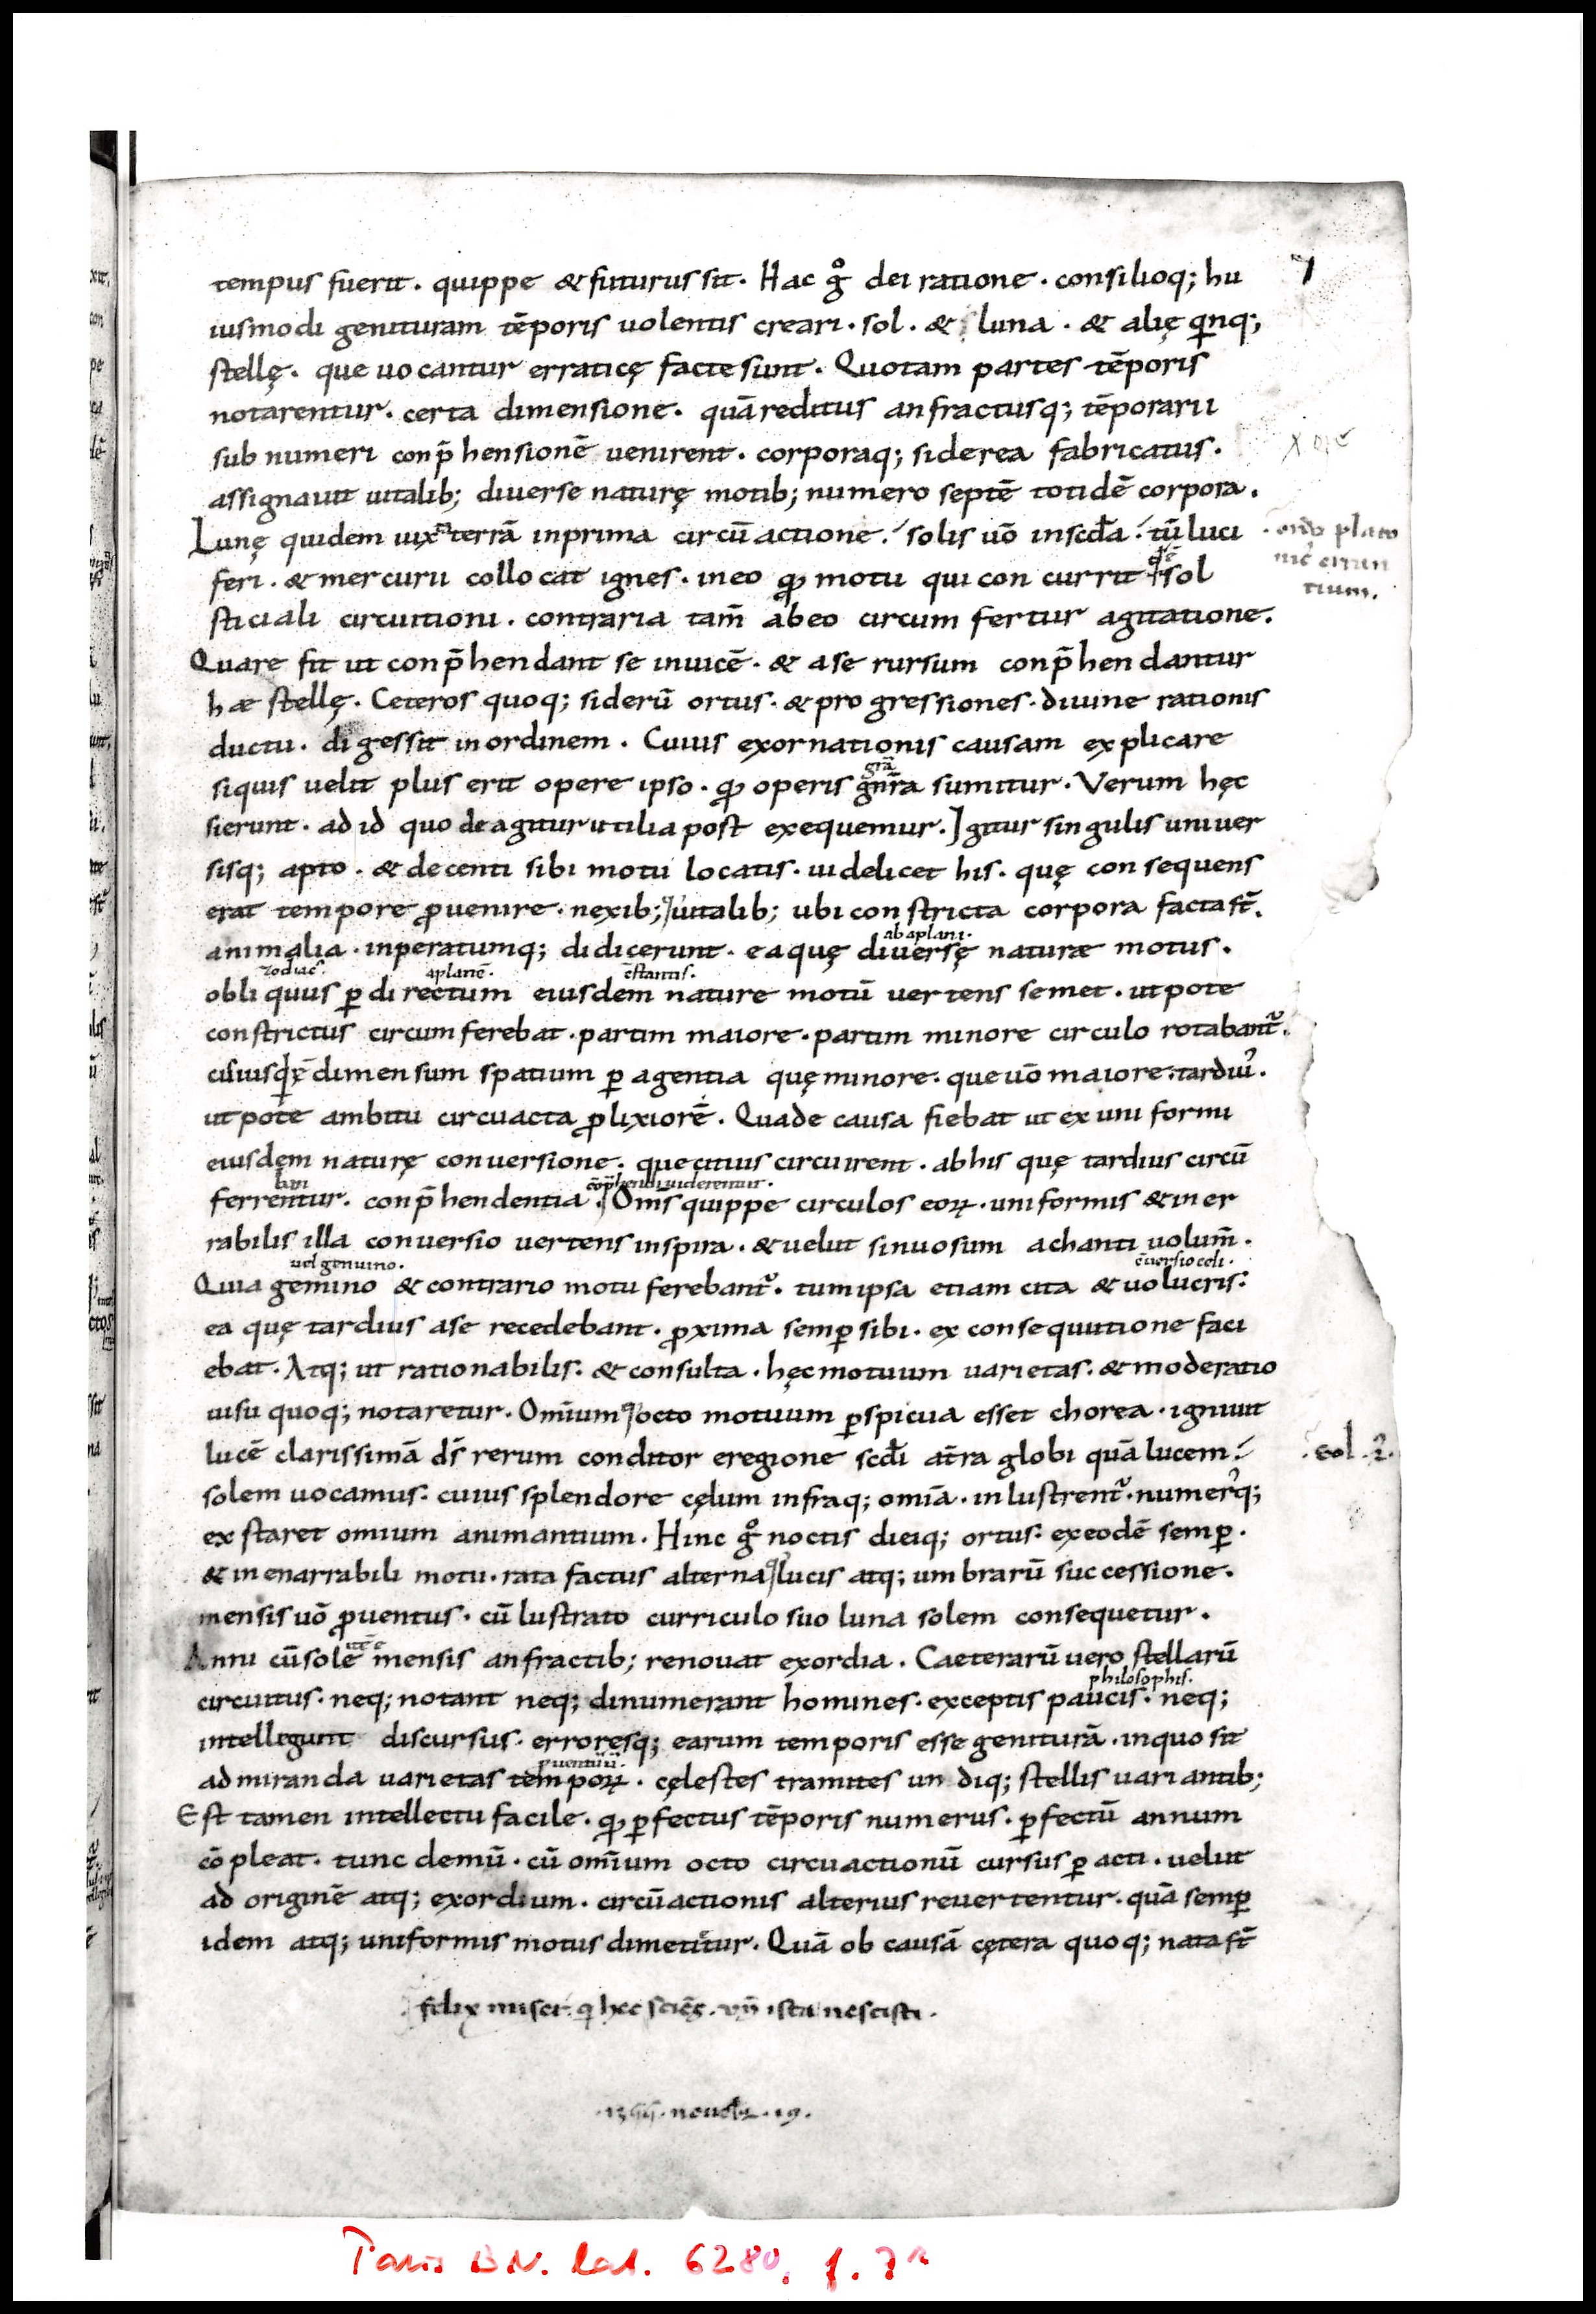 7
tempus fuerit. quippe & futurus sit. Hac g̊ dei ratione. consilioq; hu
iusmodi genituram tēporis uolentis creari. sol. & luna. & alię qinq;
stellę. que uocantur erraticę facte sunt. Quotam partes tēporis
notarentur. certa dimensione. quā reditus anfractusq; tēporarii
sub numeri conp̄hensionē uenirent. corporaq; siderea fabricatus.
assignauit uitalib; diuerse naturę motib; numero septē totidē corpora.
Lunę quidem iuxta terrā inprima circū actione. solis uō inscd̄a. tū luci
ordo plato
nic' erran
tium.
feri. & mercurii collocat ignes. ineo qꝫ motu qui concurrit sol
sticiali circuitioni. contraria tam̄ abeo circum fertur agitatione.
Quare fit ut conp̄hendant se inuicē. & ase rursum conp̄hendantur
hæ stellę. Ceteros quoq; siderū ortus. & progressiones. diuine rationis
ductu. digessit inordinem. Cuius exornationis causam explicare
grā
siquis uelit plus erit opere ipso. qꝫ operis gn̄ra sumitur. Verum hęc
sierunt. ad id quo de agitur utilia post exequemur. Igitur singulis uniuer
sisq; apto. & decenti sibi motu locatis. uidelicet his. quę consequens
erat tempore ꝓuenire. nexib; uitalib; ubi constricta corpora facta st̄.
ab aplani.
animalia. inperatumq; didicerunt. ea quę diuersę naturæ motus.
zodiac'. aplanē. c̄stantis.
obliquus ꝑ directum eiusdem nature motū uertens semet. utpote
constrictus circumferebat. partim maiore. partim minore circulo rotabant᷑.
dimensum spatium ꝑagentia quę minore. que uō maiore. tardiu'.
utpote ambitu circuacta ꝓlixiorē. Quade causa fiebat ut ex uni formi
eiusdem naturę conuersione. que citius circuirent. abhis quę tardius circū
ban cōp̄hendi uiderentur.
ferrentur. conp̄hendentia. Om̄s quippe circulos eoꝝ. uniformis & iner
rabilis illa conuersio uertens inspira. & uelut sinuosum achanti uolum̄.
uel genuino. c̄uersio celi.
Quia gemino & contrario motu ferebant᷑. tum ipsa etiam cita & uolucris.
ea quę tardius ase recedebant. ꝓxima semꝑ sibi. ex consequutione faci
ebat. Atq; ut rationabilis. & consulta. hęc motuum uarietas. & moderatio
uisu quoq; notaretur. Omīum octo motuum ꝑspicua esset chorea. igniuit
lucē clarissimā ds̄ rerum conditor eregione scd̄i at̄ra globi quā lucem
.sol.2.
solem uocamus. cuius splendore cęlum infraq; omīa. inlustrent᷑. numer'q;
exstaret omium animantium. Hinc g̊ noctis dieiq; ortus. exeodē semꝑ.
& inenarrabili motu. rata factus alterna lucis atq; umbrarū successione.
mensis uō ꝓuentus. cū lustrato curriculo suo luna solem consequetur.
Anni cū sole mensis anfractib; renouat exordia. Caeterarū uero stellarū
philosophis.
circuitus. neq; notant neq; dinumerant homines. exceptis paucis. neq;
intellegunt discursus. erroresq; earum temporis esse geniturā. inquo sit
ꝓuentuū.
admiranda uarietas tempoꝝ. cęlestes tramites undiq; stellis uariantib;
Est tamen intellectu facile. qꝫ ꝑfectus tēporis numerus. ꝑfectū annum
cōpleat. tunc demū. cū omīum octo circuactionū cursus ꝑacti. uelut
ad originē atq; exordium. circūactionis alterius reuertentur. quā semꝑ
idem atq; uniformis motus dimetitur. Quā ob causā cętera quoq; nata st̄
felix miser q̇ hec sciēs. ista nescisti.
Paris BN. lat. 6280, f. 7r